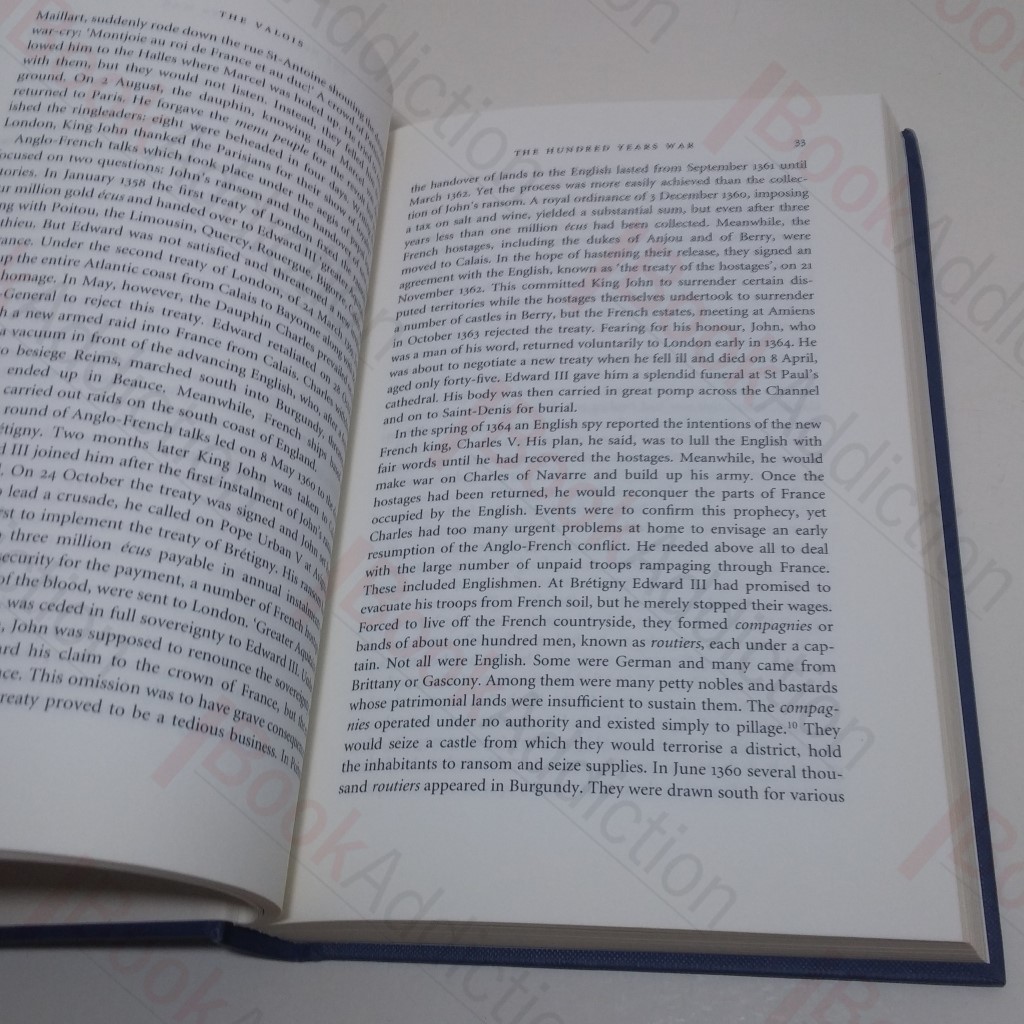 THE VALOIS
Maillart, suddenly rode down the rue St-Antoine shouting the
war-cry: 'Montjoie au roi de France et au duc!' A crowd
lowed him to the Halles where Marcel was holed up. He tried
with them, but they would not listen. Instead, they felled
ground. On 2 August, the dauphin, knowing that Marcel
returned to Paris. He forgave the menu peuple for the
ished the ringleaders: eight were beheaded in four days.
London, King John thanked the Parisians for their show of
Anglo-French talks which took place under the aegis of
ocused on two questions: John's ransom and the handover of
tories. In January 1358 the first treaty of London fixed the
ur million gold écus and handed over to Edward III
ng with Poitou, the Limousin, Quercy, Rouergue, Bigorre,
thieu. But Edward was not satisfied and threatened a new
ance. Under the second treaty of London, of 24 March
up the entire Atlantic coast from Calais to Bayonne along
homage. In May, however, the Dauphin Charles prevailed
General to reject this treaty. Edward retaliated on 28
h a new armed raid into France from Calais. Charles
a vacuum in front of the advancing English, who, after
o besiege Reims, marched south into Burgundy,
ended up in Beauce. Meanwhile, French ships
carried out raids on the south coast of England.
round of Anglo-French talks led on 8 May 1360 to the
étigny. Two months later King John was taken
d III joined him after the first instalment of John's
. On 24 October the treaty was signed and John
o lead a crusade, he called on Pope Urban V at
st to implement the treaty of Brétigny. His ransom
three million écus payable in annual instalments
security for the payment, a number of French
of the blood, were sent to London. 'Greater
was ceded in full sovereignty to Edward III.
, John was supposed to renounce the sovereignty
rd his claim to the crown of France, but
ce. This omission was to have grave consequences
reaty proved to be a tedious business. In
THE HUNDRED YEARS WAR 33
the handover of lands to the English lasted from September 1361 until
March 1362. Yet the process was more easily achieved than the collec-
tion of John's ransom. A royal ordinance of 5 December 1360, imposing
a tax on salt and wine, yielded a substantial sum, but even after three
years less than one million écus had been collected. Meanwhile, the
French hostages, including the dukes of Anjou and of Berry, were
moved to Calais. In the hope of hastening their release, they signed an
agreement with the English, known as 'the treaty of the hostages', on 21
November 1362. This committed King John to surrender certain dis-
puted territories while the hostages themselves undertook to surrender
a number of castles in Berry, but the French estates, meeting at Amiens
in October 1363 rejected the treaty. Fearing for his honour, John, who
was a man of his word, returned voluntarily to London early in 1364. He
was about to negotiate a new treaty when he fell ill and died on 8 April,
aged only forty-five. Edward III gave him a splendid funeral at St Paul's
cathedral. His body was then carried in great pomp across the Channel
and on to Saint-Denis for burial.
In the spring of 1364 an English spy reported the intentions of the new
French king, Charles V. His plan, he said, was to lull the English with
fair words until he had recovered the hostages. Meanwhile, he would
make war on Charles of Navarre and build up his army. Once the
hostages had been returned, he would reconquer the parts of France
occupied by the English. Events were to confirm this prophecy, yet
Charles had too many urgent problems at home to envisage an early
resumption of the Anglo-French conflict. He needed above all to deal
with the large number of unpaid troops rampaging through France.
These included Englishmen. At Brétigny Edward III had promised to
evacuate his troops from French soil, but he merely stopped their wages.
Forced to live off the French countryside, they formed compagnies or
bands of about one hundred men, known as routiers, each under a cap-
tain. Not all were English. Some were German and many came from
Brittany or Gascony. Among them were many petty nobles and bastards
whose patrimonial lands were insufficient to sustain them. The compag-
nies operated under no authority and existed simply to pillage.¹⁰ They
would seize a castle from which they would terrorise a district, hold
the inhabitants to ransom and seize supplies. In June 1360 several thou-
sand routiers appeared in Burgundy. They were drawn south for various